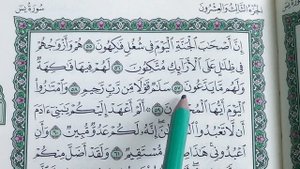 الجزء الثالث والعشرون سورة يس
إِنَّ أَصْحَٰبَ ٱلْجَنَّةِ ٱلْيَوْمَ فِى شُغُلٍ فَٰكِهُونَ ٥٥ هُمْ وَأَزْوَٰجُهُمْ
فِى ظِلَٰلٍ عَلَى ٱلْأَرَآئِكِ مُتَّكِـُٔونَ ٥٦ لَهُمْ فِيهَا فَٰكِهَةٌ
وَلَهُم مَّا يَدَّعُونَ ٥٧ سَلَٰمٌ قَوْلًا مِّن رَّبٍّ رَّحِيمٍ ٥٨ وَٱمْتَٰزُوا۟
ٱلْيَوْمَ أَيُّهَا ٱلْمُجْرِمُونَ ٥٩ أَلَمْ أَعْهَدْ إِلَيْكُمْ يَٰبَنِىٓ ءَادَمَ
أَن لَّا تَعْبُدُوا۟ ٱلشَّيْطَٰنَ إِنَّهُۥ لَكُمْ عَدُوٌّ مُّبِينٌ ٦٠ وَأَنِ
ٱعْبُدُونِى هَٰذَا صِرَٰطٌ مُّسْتَقِيمٌ ٦١ وَلَقَدْ أَضَلَّ مِنكُمْ